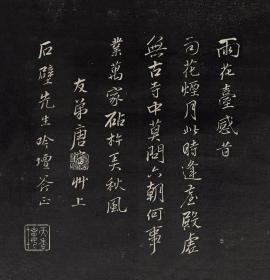 雨花臺感昔
司花煙月此時逢臺殿虛
無古寺中莫問六朝何事
業萬家砧杵美秋風
友弟唐寅艸上
石壁先生吟壇茖正